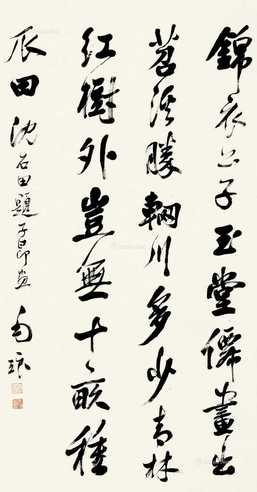 錦衣公子玉堂僊畫出
苕溪勝輞川多少青林
紅樹外豈無十畝種
瓜田 沈石田題子昂畫